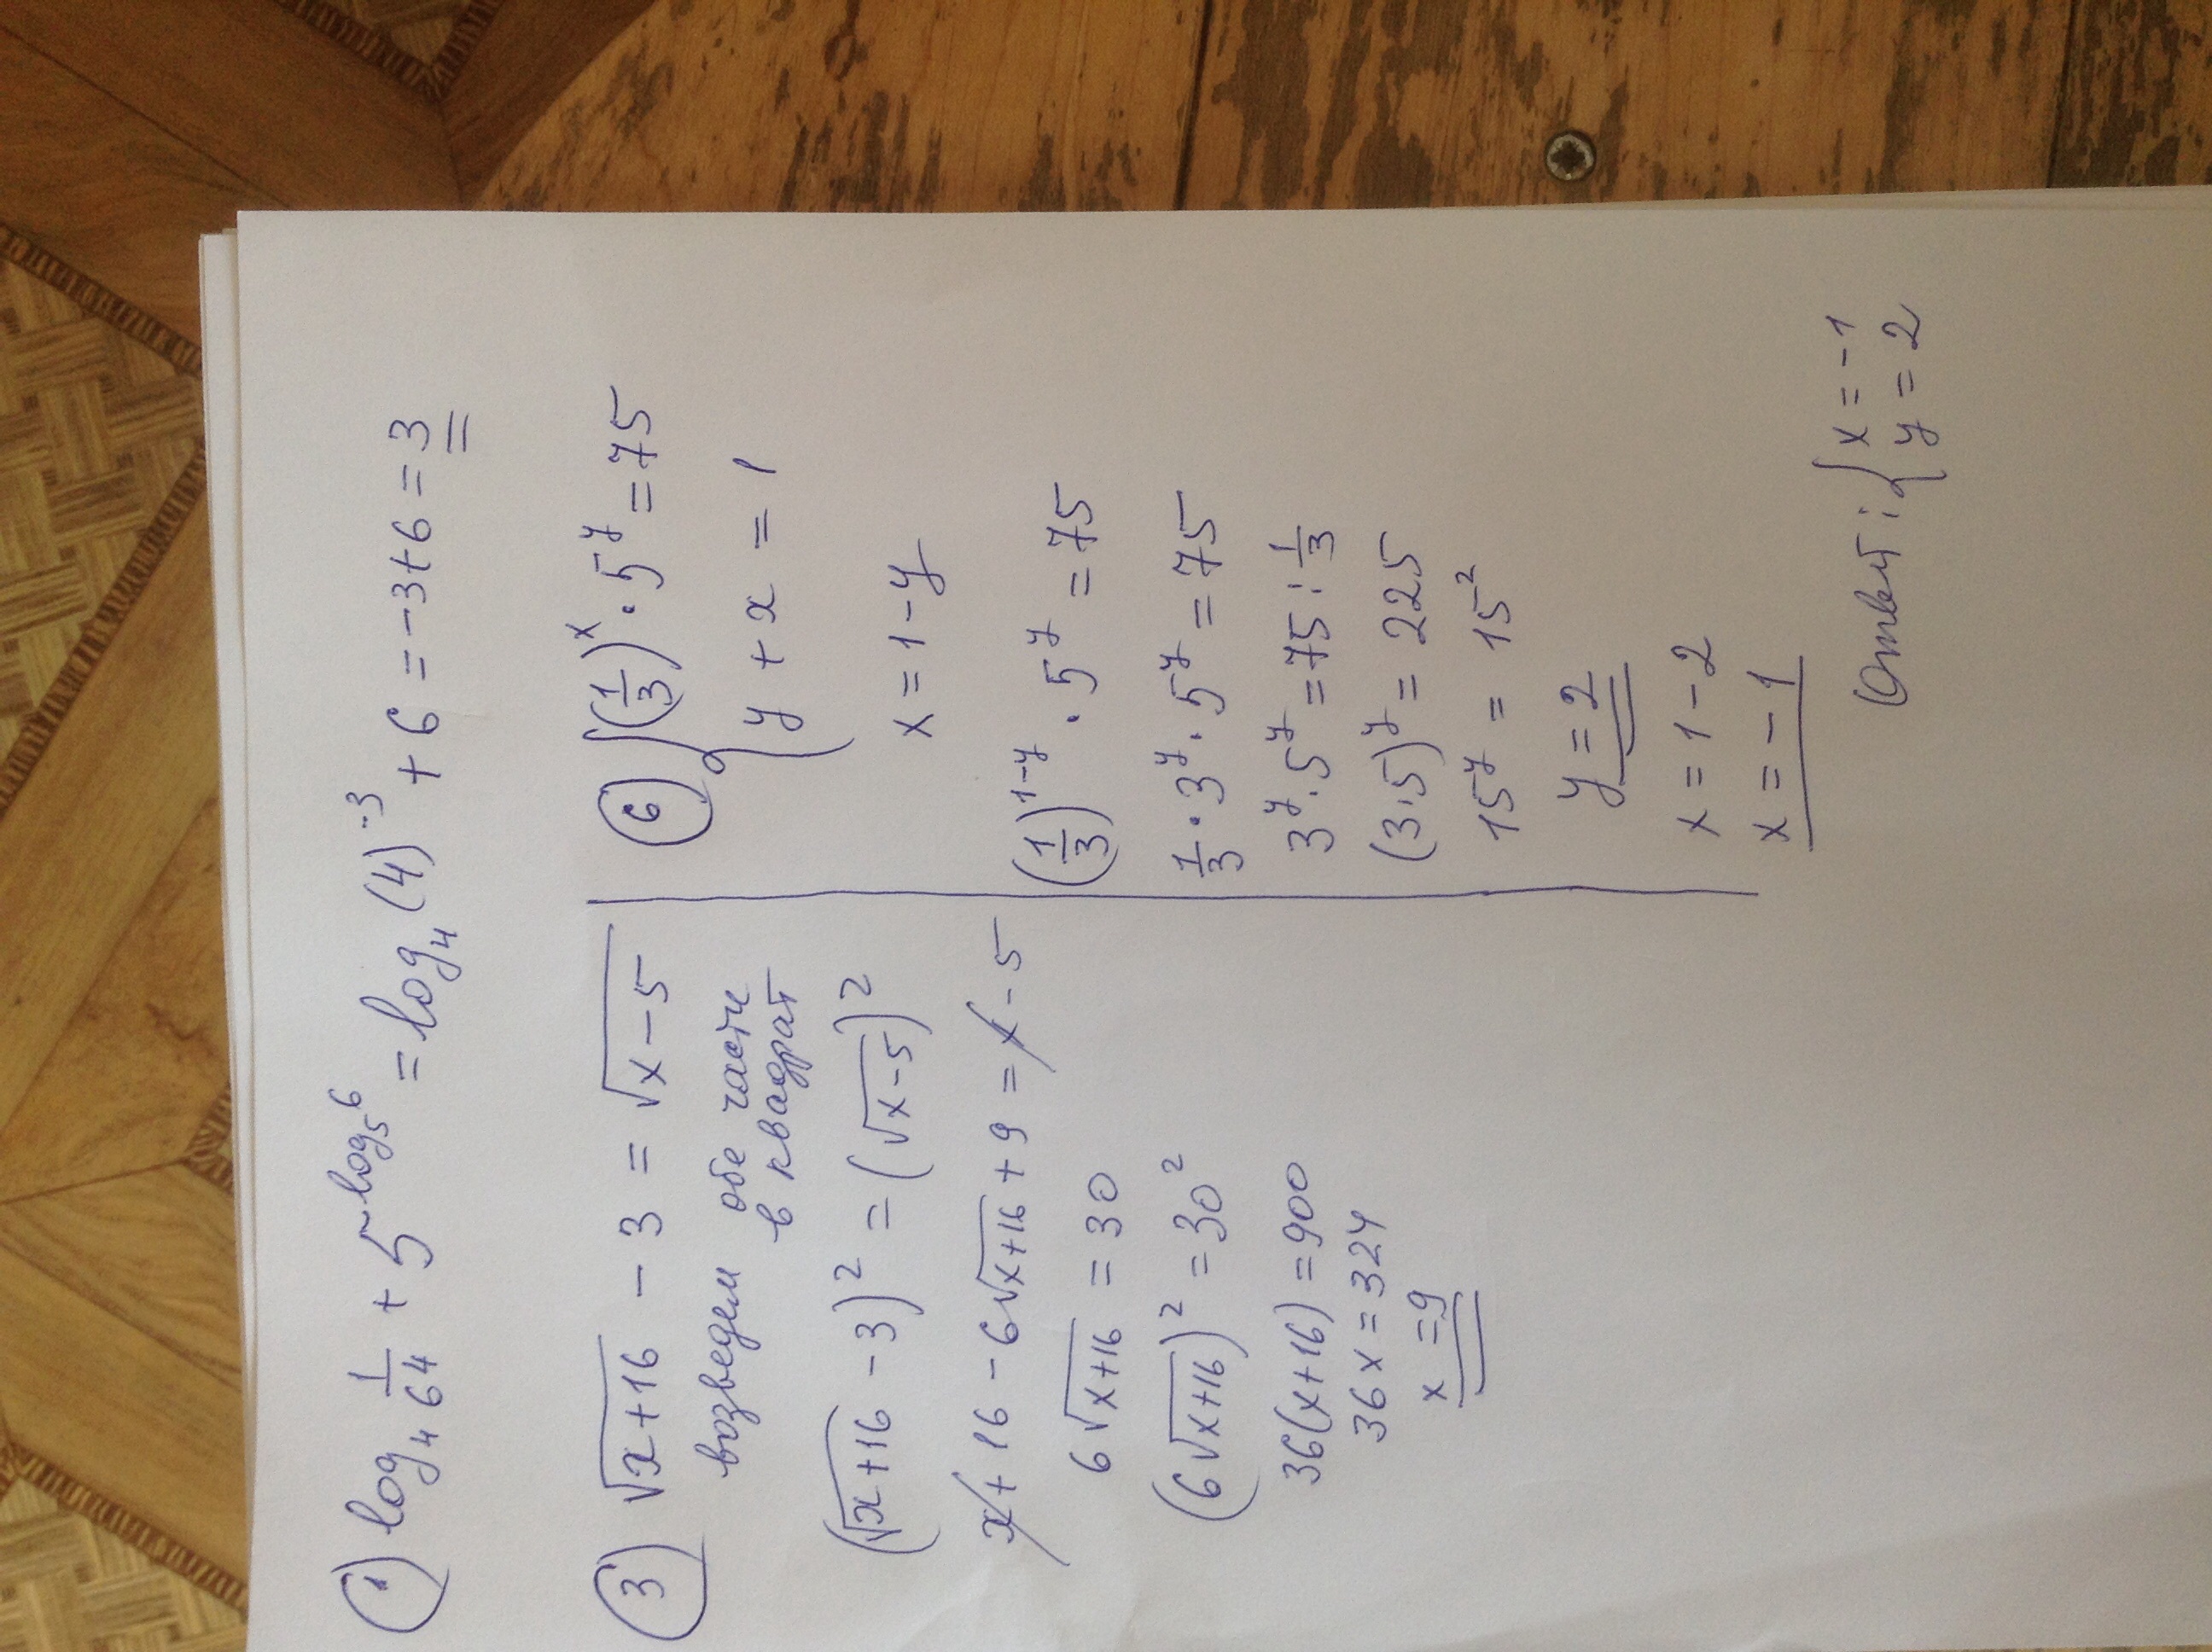 ① log₄ 1/64 + 5^log₅6 = log₄(4)⁻³ + 6 = -3+6 = 3
③ √(x+16) - 3 = √(x-5)
возведем обе части
в квадрат
(√(x+16) - 3)² = (√(x-5))²
x + 16 - 6√(x+16) + 9 = x - 5
6√(x+16) = 30
(6√(x+16))² = 30²
36(x+16) = 900
36x = 324
x = 9
⑥ { (1/3)^x · 5^y = 75
y + x = 1
x = 1 - y
(1/3)^(1-y) · 5^y = 75
1/3 · 3^y · 5^y = 75
3^y · 5^y = 75 : 1/3
(3·5)^y = 225
15^y = 15²
y = 2
x = 1 - 2
x = -1
Ответ: { x = -1
y = 2